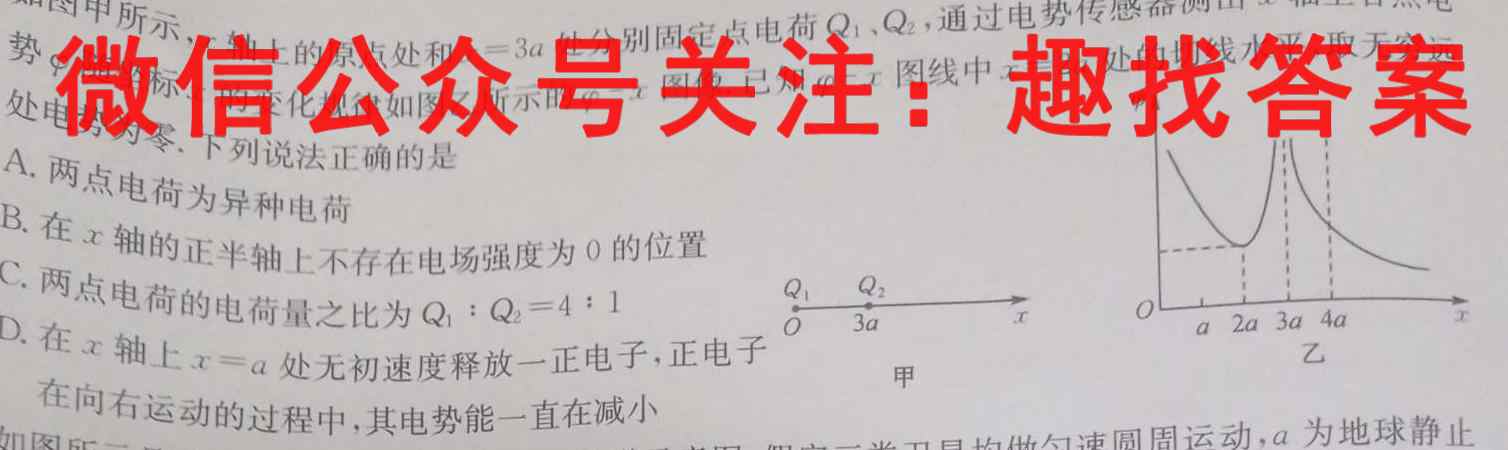 如图甲所示, 轴上的原点处和 =3a 处分别固定点电荷Q₁、Q₂,通过电势传感器测出
势 标 的变化规律如图乙所示的φ-x 图像,已知φ-x 图线中 处的切线水平,取无穷远
处电势为零.下列说法正确的是
微信公众号关注：趣找答案
A. 两点电荷为异种电荷
B. 在 x 轴的正半轴上不存在电场强度为 0 的位置
C. 两点电荷的电荷量之比为 Q₁：Q₂=4：1
D. 在 x 轴上 x=a 处无初速度释放一正电子,正电子
在向右运动的过程中,其电势能一直在减小
Q₁ Q₂
O 3a x
甲
O a 2a 3a 4a x
乙
匀速圆周运动,a 为地球静止